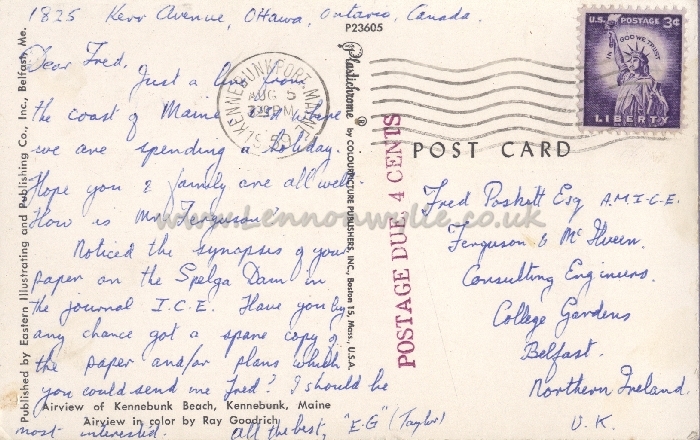 1825 Kerr Avenue, Ottawa, Ontario, Canada.
P23605
Dear Fred,
Just a line from
the coast of Maine USA where
we are spending a holiday.
Hope you & family are all well.
How is Mr. Ferguson?
Noticed the synopsis of your
paper on the Spelga Dam in
the journal I.C.E. Have you by
any chance got a spare copy of
the paper and/or plans which
you could send me Fred? I should be
most interested. All the best, "E.G" (Taylor)
Airview of Kennebunk Beach, Kennebunk, Maine
Airview in color by Ray Goodrich
Published by Eastern Illustrating and Publishing Co., Inc., Belfast, Me.
Plastichrome ® by COLOURPICTURE PUBLISHERS, INC., Boston 15, Mass., U.S.A.
KENNEBUNKPORT. MAINE
AUG 5
PM
POSTAGE DUE 4 CENTS
U.S. POSTAGE 3¢
IN GOD WE TRUST
LIBERTY
POST CARD
Fred Poskett Esq A.M.I.C.E.
Ferguson & McIlveen.
Consulting Engineers.
College Gardens
Belfast.
Northern Ireland.
U.K.
www.Lennonwylie.co.uk